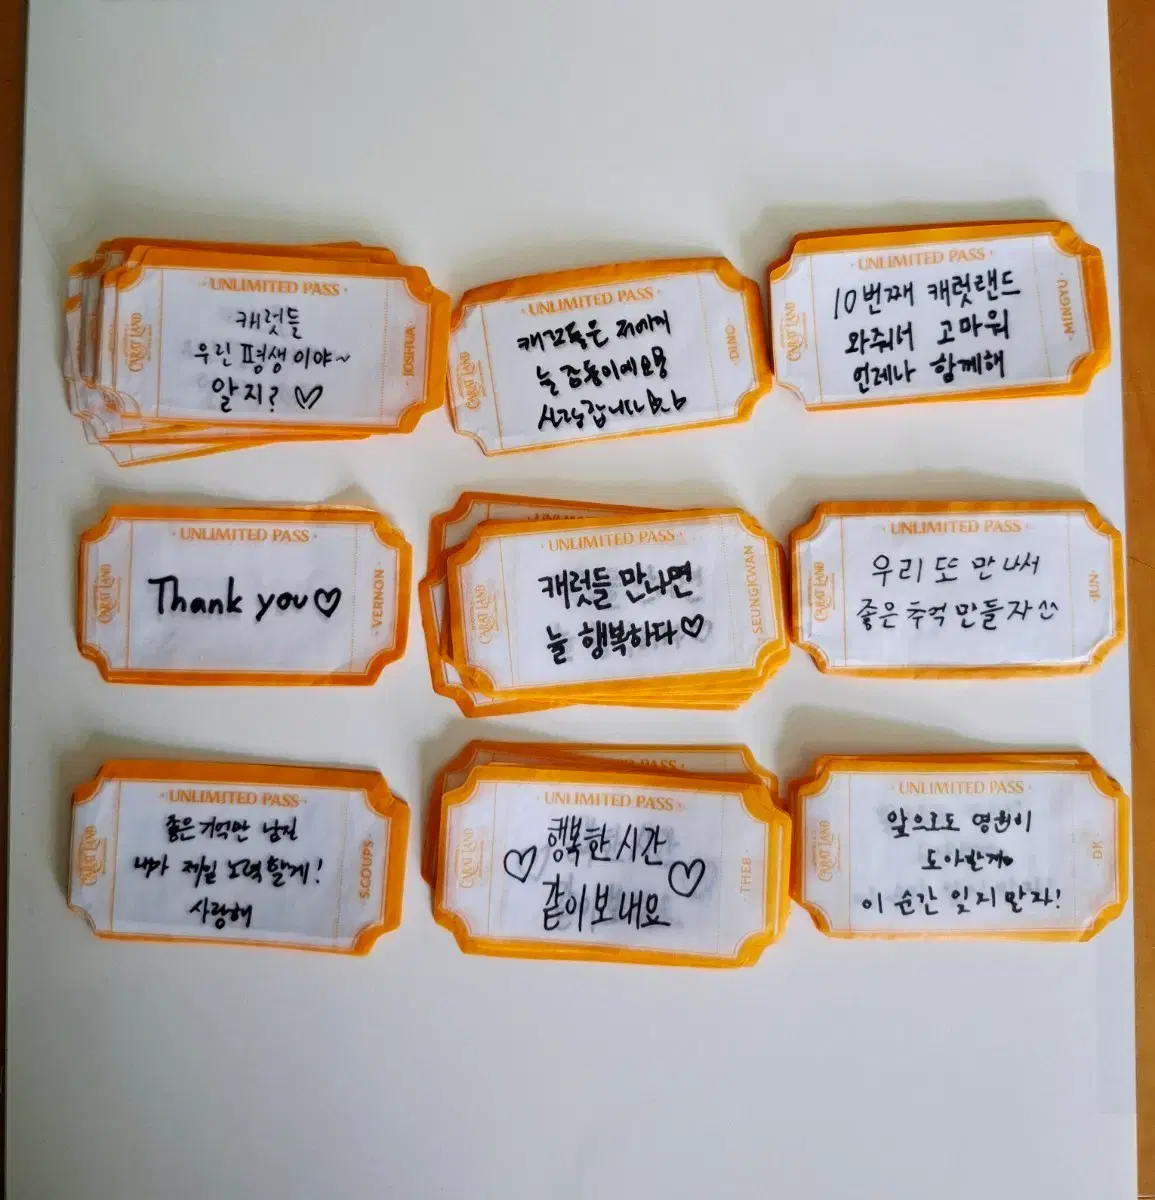 UNLIMITED PASS
캐럿들
우린 평생이야~
알지? ♡
CARAT LAND
JOSHUA
UNLIMITED PASS
늘 감동이에요
사랑합니다
CARAT LAND
DINO
UNLIMITED PASS
10번째 캐럿랜드
와줘서 고마워
언제나 함께해
CARAT LAND
MINGYU
UNLIMITED PASS
Thank you♡
CARAT LAND
VERNON
UNLIMITED PASS
캐럿들 만나면
늘 행복하다♡
CARAT LAND
SEUNGKWAN
UNLIMITED PASS
우리 또 만나서
좋은 추억 만들자
CARAT LAND
JUN
UNLIMITED PASS
좋은 기억만 남길
내가 제일 노력할게!
사랑해
CARAT LAND
S.COUPS
UNLIMITED PASS
UNLIMITED PASS
♡ 행복한 시간 ♡
같이 보내요
CARAT LAND
THE8
UNLIMITED PASS
앞으로도 영원히
이 순간 잊지 말자!
CARAT LAND
DK